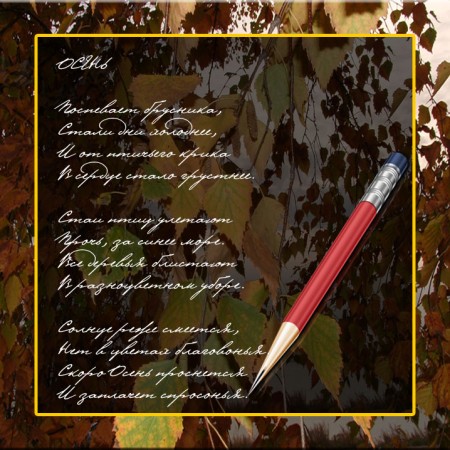 ОСЕНЬ
Поспевает брусника,
Стали дни холоднее,
И от птичьего крика
В сердце стало грустнее.
Стаи птиц улетают
Прочь, за синее море.
Все деревья блистают
В разноцветном уборе.
Солнце реже смеется,
Нет в цветах благовонья.
Скоро Осень проснется
И заплачет спросонья.